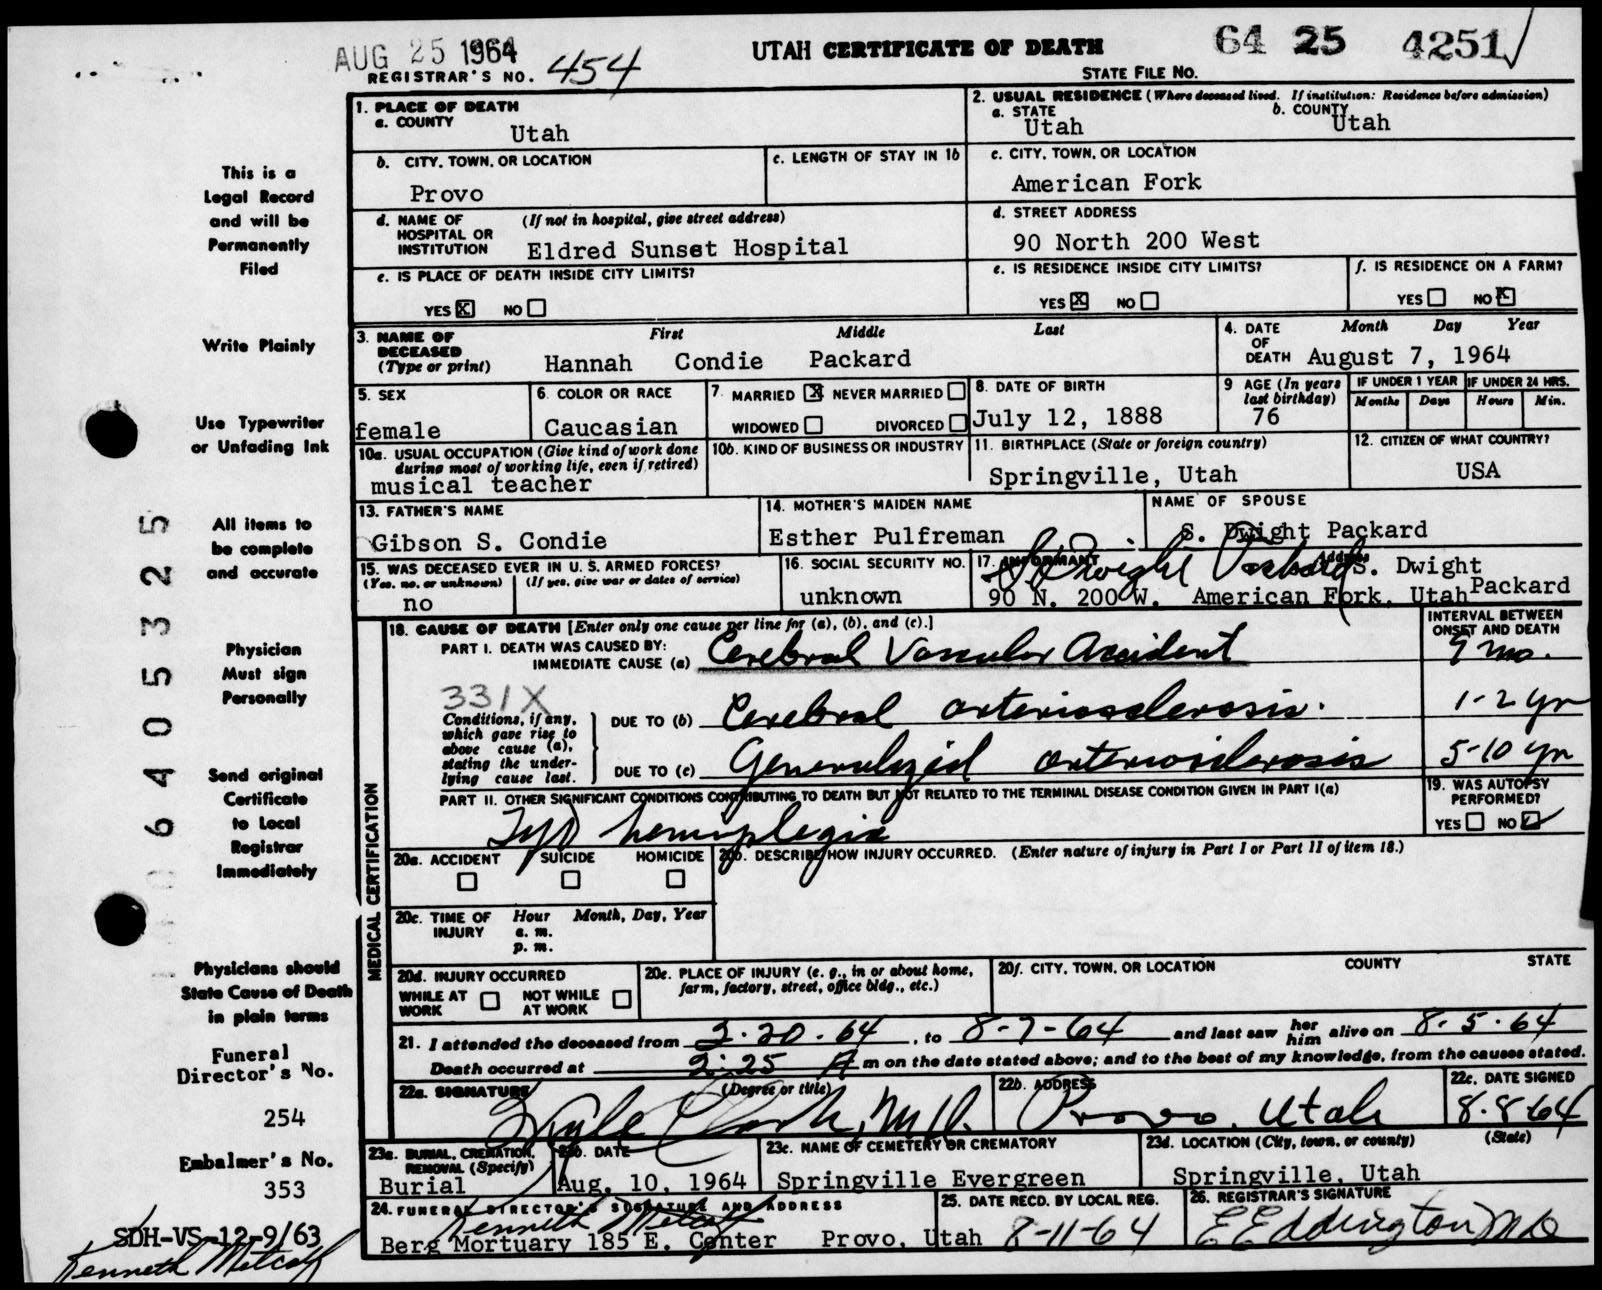 AUG 25 1964
REGISTRAR'S NO. 454
UTAH CERTIFICATE OF DEATH
64 25 4251
STATE FILE NO.
1. PLACE OF DEATH
a. COUNTY
Utah
2. USUAL RESIDENCE (Where deceased lived. If institution: Residence before admission)
a. STATE
Utah
b. COUNTY
Utah
b. CITY, TOWN, OR LOCATION
Provo
c. LENGTH OF STAY IN 1b
c. CITY, TOWN, OR LOCATION
American Fork
d. NAME OF HOSPITAL OR INSTITUTION
(If not in hospital, give street address)
Eldred Sunset Hospital
d. STREET ADDRESS
90 North 200 West
e. IS PLACE OF DEATH INSIDE CITY LIMITS?
YES X NO
e. IS RESIDENCE INSIDE CITY LIMITS?
YES X NO
f. IS RESIDENCE ON A FARM?
YES NO X
3. NAME OF DECEASED
(Type or print)
First Middle Last
Hannah Condie Packard
4. DATE OF DEATH
Month Day Year
August 7, 1964
5. SEX
female
6. COLOR OR RACE
Caucasian
7. MARRIED X NEVER MARRIED
WIDOWED DIVORCED
8. DATE OF BIRTH
July 12, 1888
9 AGE (In years last birthday)
76
IF UNDER 1 YEAR
Months Days
IF UNDER 24 HRS.
Hours Min.
10a. USUAL OCCUPATION (Give kind of work done during most of working life, even if retired)
musical teacher
10b. KIND OF BUSINESS OR INDUSTRY
11. BIRTHPLACE (State or foreign country)
Springville, Utah
12. CITIZEN OF WHAT COUNTRY?
USA
13. FATHER'S NAME
Gibson S. Condie
14. MOTHER'S MAIDEN NAME
Esther Pulfreman
NAME OF SPOUSE
S. Dwight Packard
15. WAS DECEASED EVER IN U. S. ARMED FORCES?
(Yes, no, or unknown) (If yes, give war or dates of service)
no
16. SOCIAL SECURITY NO.
unknown
17. INFORMANT Address
S Dwight Packard S. Dwight Packard
90 N. 200 W. American Fork, Utah
18. CAUSE OF DEATH [Enter only one cause per line for (a), (b), and (c).]
INTERVAL BETWEEN ONSET AND DEATH
PART I. DEATH WAS CAUSED BY:
IMMEDIATE CAUSE (a) Cerebral Vascular Accident
mo.
331X
Conditions, if any, which gave rise to above cause (a), stating the underlying cause last.
DUE TO (b) Cerebral arteriosclerosis.
1-2 yr
DUE TO (c) Generalized arteriosclerosis
5-10 yr
PART II. OTHER SIGNIFICANT CONDITIONS CONTRIBUTING TO DEATH BUT NOT RELATED TO THE TERMINAL DISEASE CONDITION GIVEN IN PART I(a)
hemiplegia
19. WAS AUTOPSY PERFORMED?
YES NO
MEDICAL CERTIFICATION
20a. ACCIDENT SUICIDE HOMICIDE
20b. DESCRIBE HOW INJURY OCCURRED. (Enter nature of injury in Part I or Part II of item 18.)
20c. TIME OF INJURY
Hour Month, Day, Year
a. m.
p. m.
20d. INJURY OCCURRED
WHILE AT WORK NOT WHILE AT WORK
20e. PLACE OF INJURY (e. g., in or about home, farm, factory, street, office bldg., etc.)
20f. CITY, TOWN, OR LOCATION COUNTY STATE
21. I attended the deceased from 2-20-64, to 8-7-64 and last saw her him alive on 8-5-64
Death occurred at 2:25 A m on the date stated above; and to the best of my knowledge, from the causes stated.
22a. SIGNATURE (Degree or title)
Clark, M.D.
22b. ADDRESS
Provo, Utah
22c. DATE SIGNED
8-8-64
23a. BURIAL, CREMATION, REMOVAL (Specify)
Burial
23b. DATE
Aug. 10, 1964
23c. NAME OF CEMETERY OR CREMATORY
Springville Evergreen
23d. LOCATION (City, town, or county) (State)
Springville, Utah
24. FUNERAL DIRECTOR'S SIGNATURE AND ADDRESS
Kenneth Metcalf
Berg Mortuary 185 E. Center Provo, Utah
25. DATE RECD. BY LOCAL REG.
8-11-64
26. REGISTRAR'S SIGNATURE
E Eddington MD
This is a
Legal Record
and will be
Permanently
Filed
Write Plainly
Use Typewriter
or Unfading Ink
All items to
be complete
and accurate
Physician
Must sign
Personally
Send original
Certificate
to Local
Registrar
Immediately
Physicians should
State Cause of Death
in plain terms
Funeral
Director's No.
254
Embalmer's No.
353
SDH-VS-12-9/63
Kenneth Metcalf
6405325